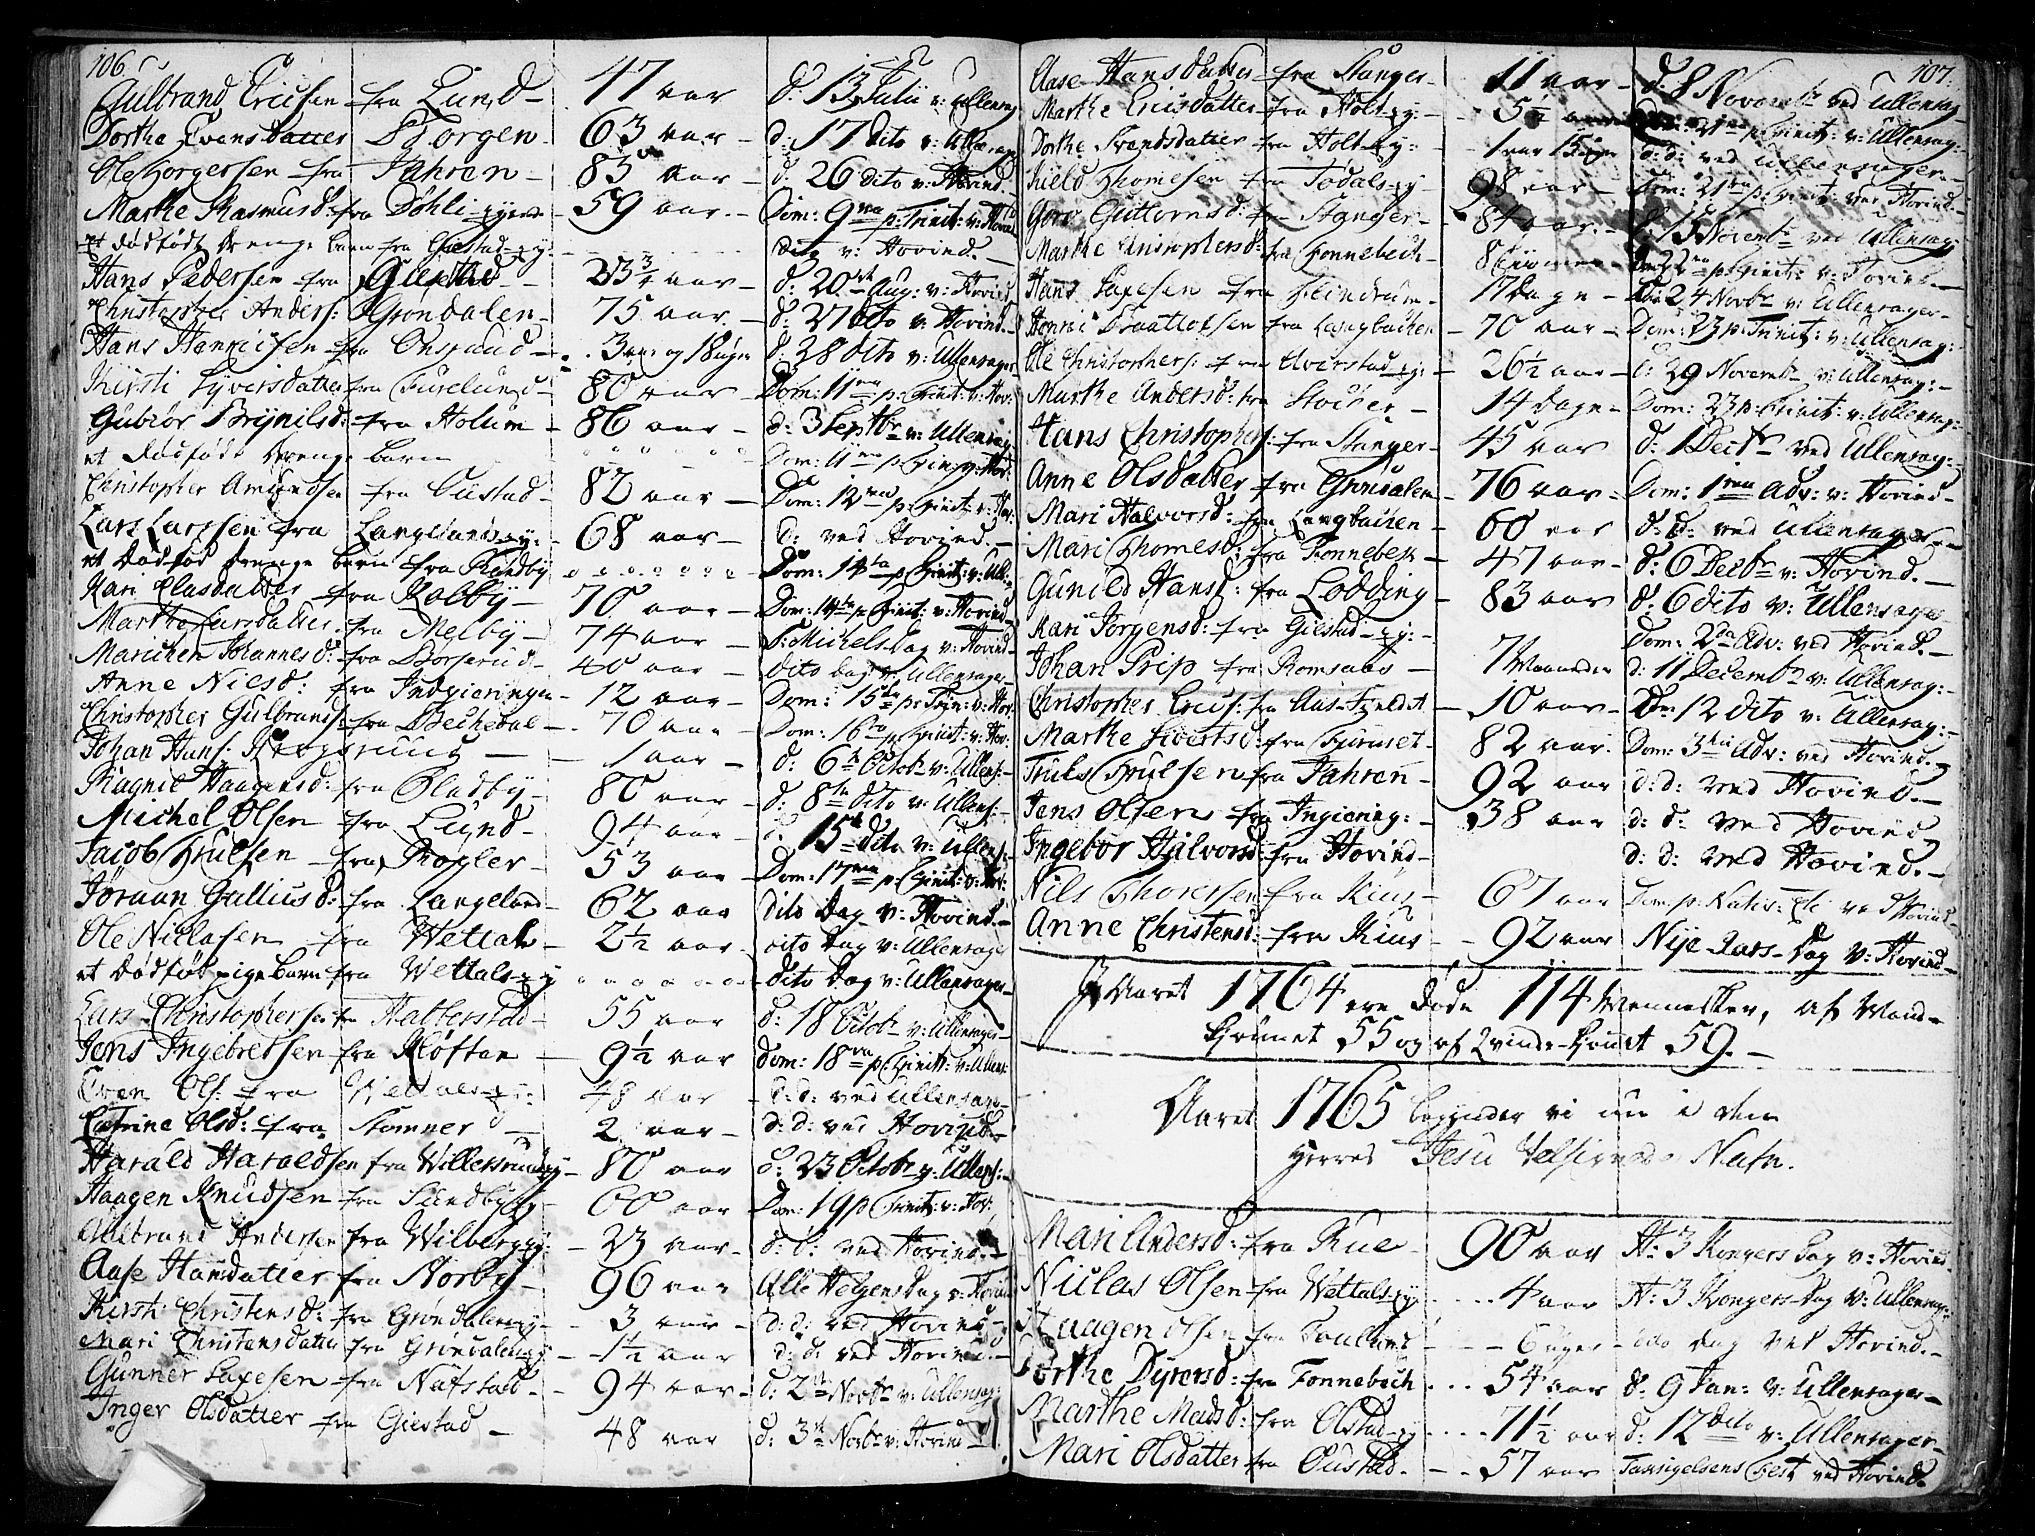 106.
Gulbrand Ericsen fra Lund - 47 aar d: 13 Julii v: Ullensag
Dorthe Evensdatter Borgen - 63 aar - d: 17 dito v: Ullensag
Ole Torgersen fra Jahren - 83 aar - d: 26 dito v: Hovind.
Marthe Rasmusd: fra Døhli-eye - 59 aar. - Dom: 9na p: Trinit: v: Hovind
et dødfødt drenge barn fra Gielstad-ey: dito v: Hovind. -
Hans Pedersen fra Gielstad - 23 3/4 aar - d: 20de Aug: v: Hovind
Christopher Anders: Grøndalen - 75 aar. - d: 27 dito v: Hovind. -
Hans Henricsen fra Onsrud - 3 aar og 18 uger d: 28 dito v: Ullensager
Kirsti Syversdatter fra Furulund - 80 aar Dom: 11na p: Trinit: v: Hov:
Gubiør Brynilsd: fra Holum - 86 aar - d: 3 Septbr v: Ullensag
et dødfødt drenge barn Dom: 11na p Trinit: v: Hov:
Christopher Amundsen fra Oustad - 82 aar - Dom: 12na p: Trinit: v: Hov:
Lars Larssen fra Langelands-ey: - 68 aar - d: ved Hovind. -
et dødfød drenge barn fra Rindby Dom: 14ta p Trinit: v: Ull:
Kari Clasdatter fra Kolby - 70 aar - Dom: 14ta p: Trinit: v: Hovind -
Marthe Larsdatter fra Melby - 74 aar St: Michels Dag v: Hovind -
Marichen Johannesd: fra Børserud - 40 aar - dito dag v: Ullensager -
Anne Nielsd: fra Indgieringen - 12 aar - Dom: 15ta p: Trin: v: Hov:
Christopher Gulbrands: fra Beckedal - 70 aar - Dom: 16ta p: Trinit: v: Hov:
Johan Hans: Krogsrud - 1 aar - d: 6te Octob: v: Ullens: -
Ragnil Haagensd: fra Gladby - 80 aar - d: 8te dito v: Ullens: -
Michel Olsen fra Lund - 94 aar - d: 15de dito v: Ullens: -
Jacob Truelsen - fra Kogler - 53 aar - Dom: 17ma p: Trinit: v: Hov:
Jøraan Gulliusd: fra Langeland - 62 aar dito Dag v: Hovind. -
Ole Niclasen fra Wettal - 2½ aar - dito Dag v: Ullensager
et dødfødt pigebarn fra Wettals-ey dito Dag v: Ullensager -
Lars Christophersen fra Habberstad - 55 aar d: 18 Octobr v: Ullensager -
Jens Ingebretsen fra Kløfften - 9½ aar Dom: 18va p: Trinit: v: Ullens:
Even Ols: fra Wettals-ey: 48 aar - d: d: ved Ullensager -
Catrine Olsd: fra Komner - 2 aar - d: d: ved Hovind -
Harald Haraldsen fra Willersrud-ey - 80 aar d: 23 Octobr v: Ullens: -
Haagen Knudsen fra Sundby-ey - 60 aar Dom: 19 p Trinit: v: Hov:
Andersen fra Wilberg-ey: - 23 aar - d: d: ved Hovind. -
Aase Hansdatter fra Norby - 96 aar Alle Helgens dag v: Hovind
Kirsti Christensd: fra Grøndalens-ey - 3 aar - d: d: ved Hovind -
Mari Christensdatter fra Grøndalens-ey - 1½ aar d: d: ved Hovind. -
Gunner Saxesen fra Nafstad - 94 aar - d: 2de Novbr v: Ullensag:
Inger Olsdatter fra Gielstad - 48 aar d: 3de Novbr v: Hovind -
107.
Aase Hansdatter fra Stanger - 11 aar - d: 8 Novembr ved Ullensag
Marthe Ericsdatter fra Holt-ey: - 5½ Dom: 21na p: Trinit: v: Ullensag: -
Dorthe Svendsdatter fra Holt-ey: - 1 aar 15 uger d: d: ved Ullensager. -
Kield Thomesen fra Tødals-ey - 98 aar - Dom: 21na p: Trinit: ved Hovind. -
Goro Guttormsd: fra Stanger - 84 aar. - d: 15 Novembr ved Ullensag:
Marthe Christophersd: fra Tonnebech - 8 Dom: 22na p: Trinit: v: Hovind. -
Hans Saxesen fra Heindrum - 17 dage - d: 24 Novbr v: Ullensager -
Henric fra Langbacken - 70 aar - Dom: 23 p: Trinit: v: Ullensag: -
Ole Christophers: fra Elverstad-ey: - 26½ aar - d: 29 Novembr v: Ullensag: -
Marthe Andersd: fra - 14 dage - Dom: 23 p: Trinit: v: Ullensag: -
Hans Christophers: fra Stanger - 45 aar d: 1 Decbr ved Ullensag: -
Anne Olsdatter fra Grøndalen - 76 aar - Dom: 1ma Adv: v: Hovind -
Mari Halvorsd: fra Langbacken - 60 aar d: d: ved Ullensager. -
Mari Thomesd: fra Tonnebech - 47 aar d: 6 Decbr v: Hovind. -
Gunild Hansd: fra Lodding - 83 aar d: 6 dito v: Ullensager
Kari Jørgensd: fra Gielstad-ey: - Dom: 2da Adv: ved Hovind. -
Johan Prip fra Romsaas - 7 Maaneder d: 11 Decembr v: Ullensag: -
Christopher Erics: fra Aas-Fieldet - 10 aar - d: 12 dito v: Ullensag: -
Marthe Sivertsd: fra Furuset - 82 aar. Dom: 3tia Adv: ved Hovind. -
Truls Trulsen fra Jahren - 92 aar d: d: ved Hovind. -
Jens Olsen fra Ingiering: - 38 aar d: d: ved Hovind
Ingebor Halvorsd: fra Hovind - d: d: ved Hovind. -
Nils Thoresen fra Kius - 67 aar Dom: p: Nativ: Chr ved Hovind -
Anne Christensd: fra Kius - 92 aar Nye Aars-Dag v: Hovind -
J Aaret 1764 ere døde 114 Mennesker, af Mand-
kiønnet 55 og af Qvinde-kiønnet 59. -
Aaret 1765 begynder vi nu i den
Herres Jesu Velsignede Nafn.
Mari Andersd: fra Rue - 90 aar H: 3 Kongers Dag v: Hovind.
Niclas Olsen fra Wettals-ey - 4 aar H: 3 Kongers-Dag v: Ullensag:
Haagen Olsen fra - 6 uger - dito dag ved Hovind. -
Dorthe Dyresd: fra Tonnebech - 54 aar d: 9 Jan: v: Ullensager -
Marthe Madsd: fra Olstad-ey - 71½ aar d: 12 dito v: Ullensager -
Mari Olsdatter fra Oustad. - 57 aar Taxigelsens fest ved Hovind.